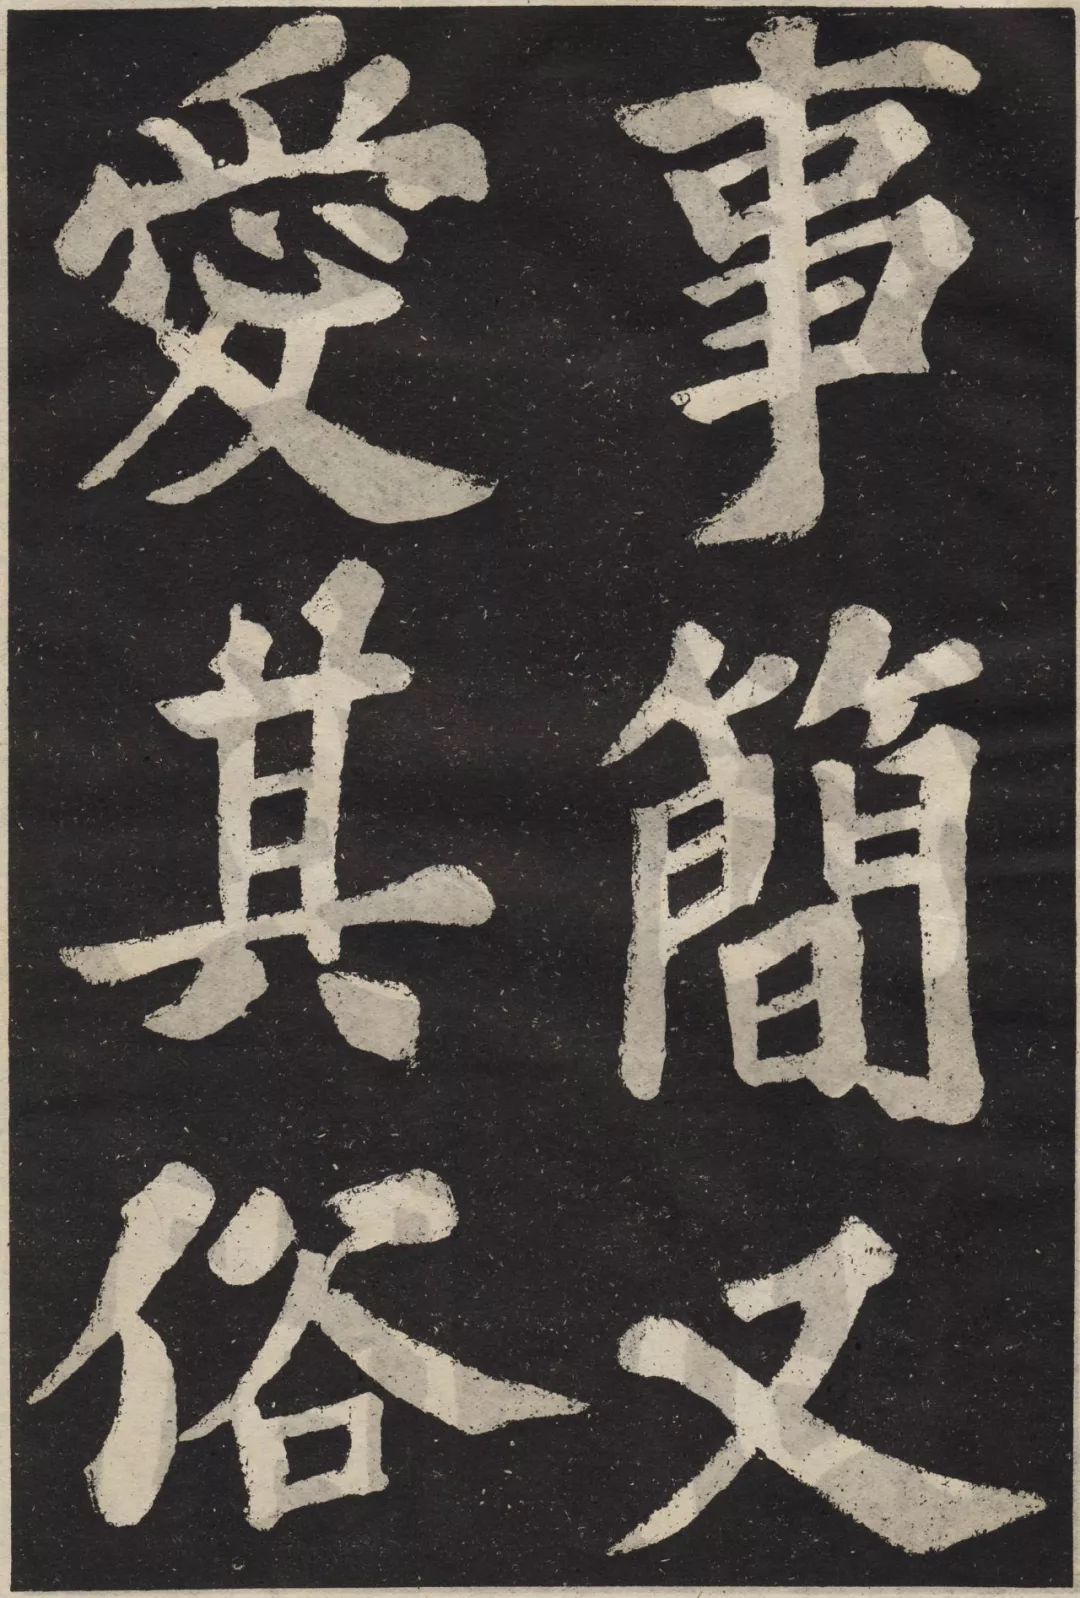 事簡又
愛其俗